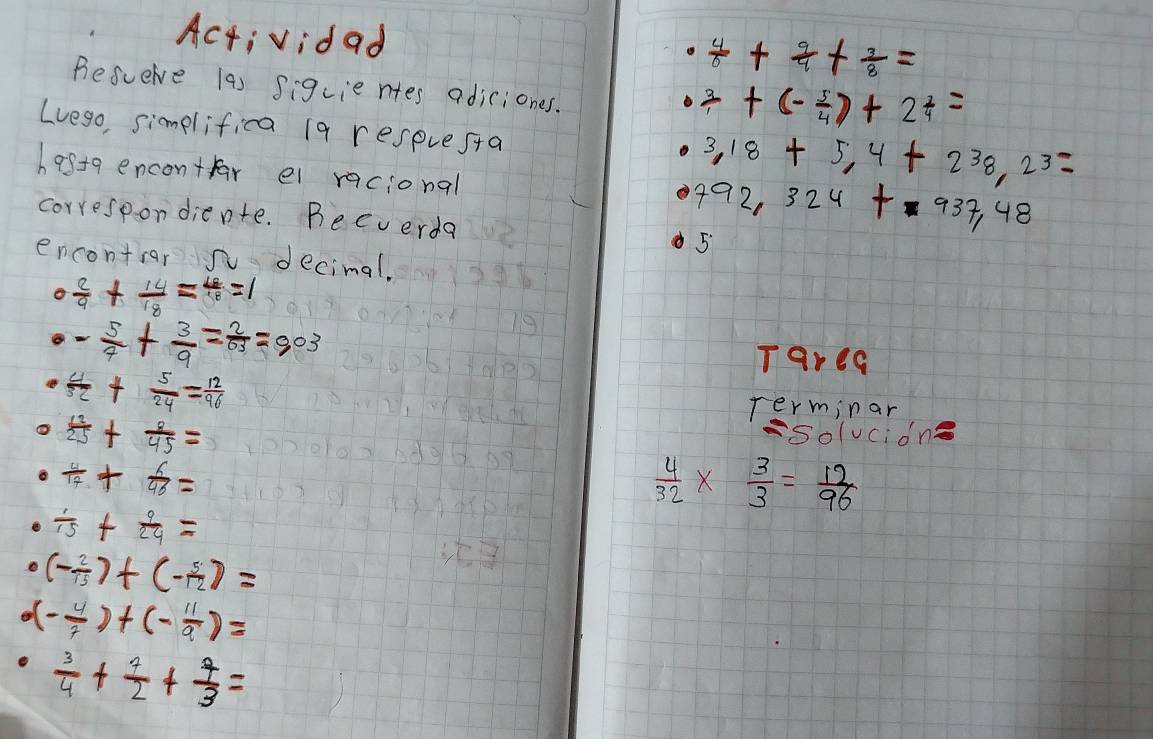 Actividad
Resuelve las siguientes adiciones.
Luego, simplifica la respuesta
hasta encontrar el racional
correspondiente. Recuerda
encontrar su decimal.
• 2/9 + 14/18 = 18/18 = 1
• - 5/7 + 3/9 = 2/63 = 0,03
• 4/32 + 5/24 = 12/96
• 12/25 + 8/45 =
• 4/17 + 6/48 =
• 1/15 + 9/24 =
• (- 2/15) + (- 5/12) =
• (- 4/7) + (- 11/9) =
• 3/4 + 7/2 + 7/3 =
• 4/6 + 9/4 + 3/8 =
• 3/1 + (- 5/4) + 2 3/4 =
• 3,18 + 5,4 + 238,23 =
• 792,324 + 937,48
• 5
Tarea
Terminar
=Solución=
4/32 x 3/3 = 12/96